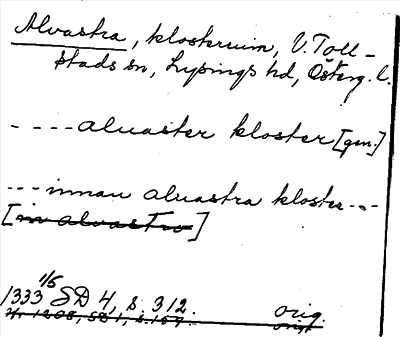 Alvastra, klosterruin, V. Toll-
stads sn, Lysings hd, Österg. l.
- - - - aluaster kloster [gen.]
--- innan aluastra kloster ---
[in alvastro]
1333 1/5 SD 4, s. 312. orig.
1208, SD 1, s. orig.